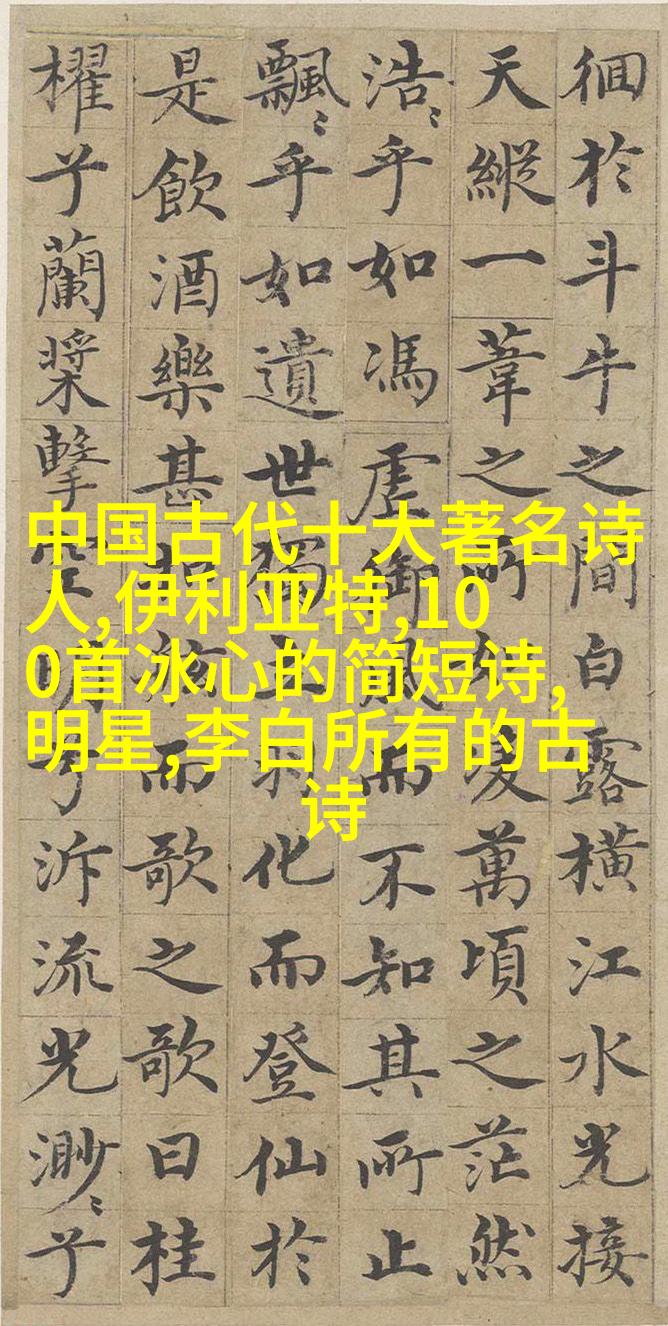 中国古代十大著名诗
人,伊利亚特,10
0首冰心的简短诗,
明星,李白所有的古
诗
徊於斗牛之間白露橫江水光接
天縱一葦之所如凌萬頃之茫然
浩〻乎如馮虛御風而不知其所止
飄〻乎如遺世獨立羽化而登仙於
是飲酒樂甚扣舷而歌之歌曰桂
櫂兮蘭槳擊空明兮泝流光渺〻兮